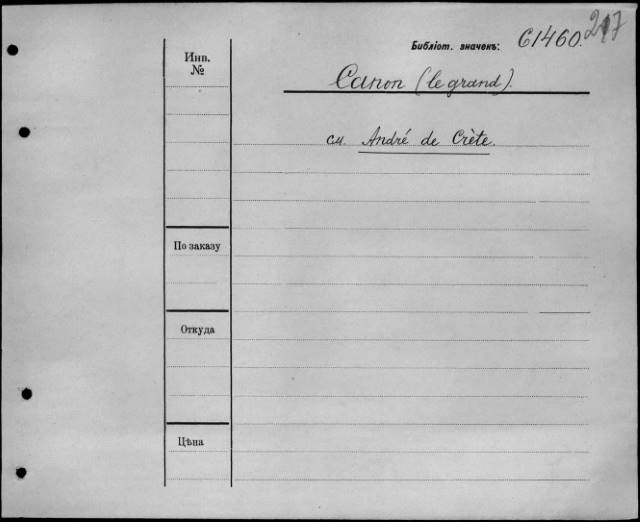 217
Библіот. значекъ: 61460.
Инв.
№
Canon (le grand).
см. André de Crète.
По заказу
Откуда
Цѣна